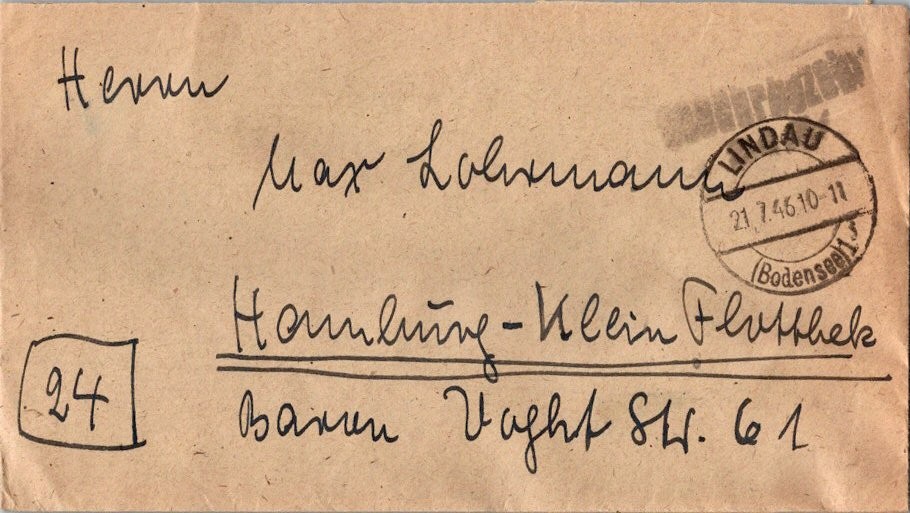 Herrn
LINDAU
21.7.46 10-11
(Bodensee)1
Max Lohrmann
Hamburg-Klein Flottbek
24
Baron Voght Str. 61